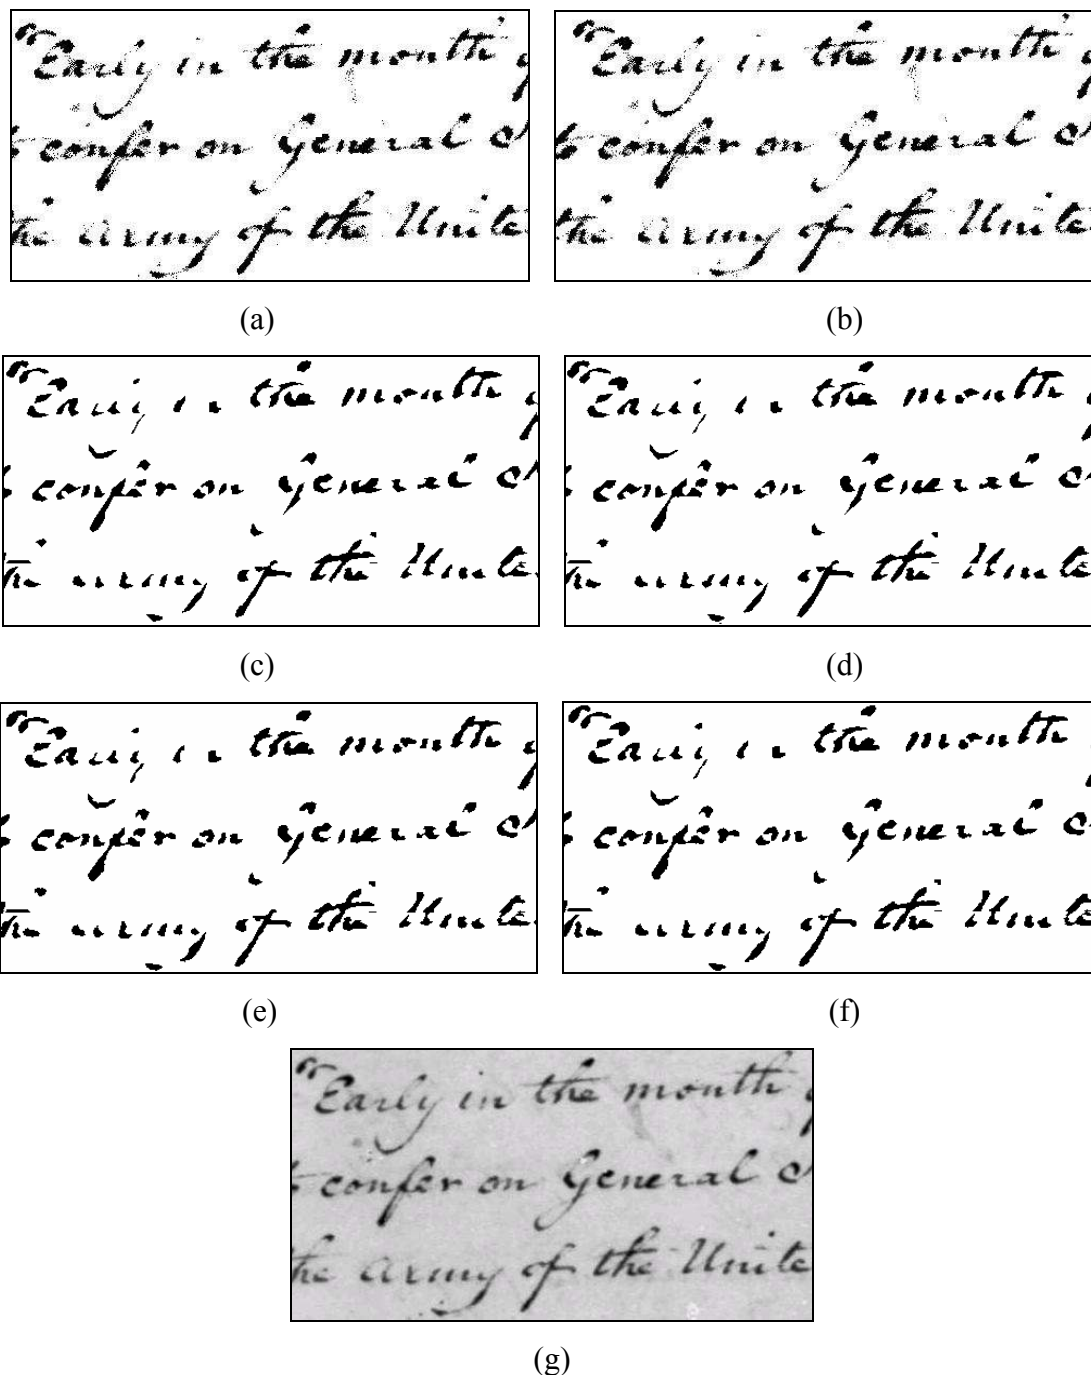 Early in the month
confer on General
the army of the Unite
(a)
Early in the month
to confer on General
the army of the Unite
(b)
Early in the month
confer on General
the army of the Unite
(c)
Early in the month
confer on General
the army of the Unite
(d)
Early in the month
confer on General
the army of the Unite
(e)
Early in the month
confer on General
the army of the Unite
(f)
Early in the month
confer on General
the army of the Unite
(g)